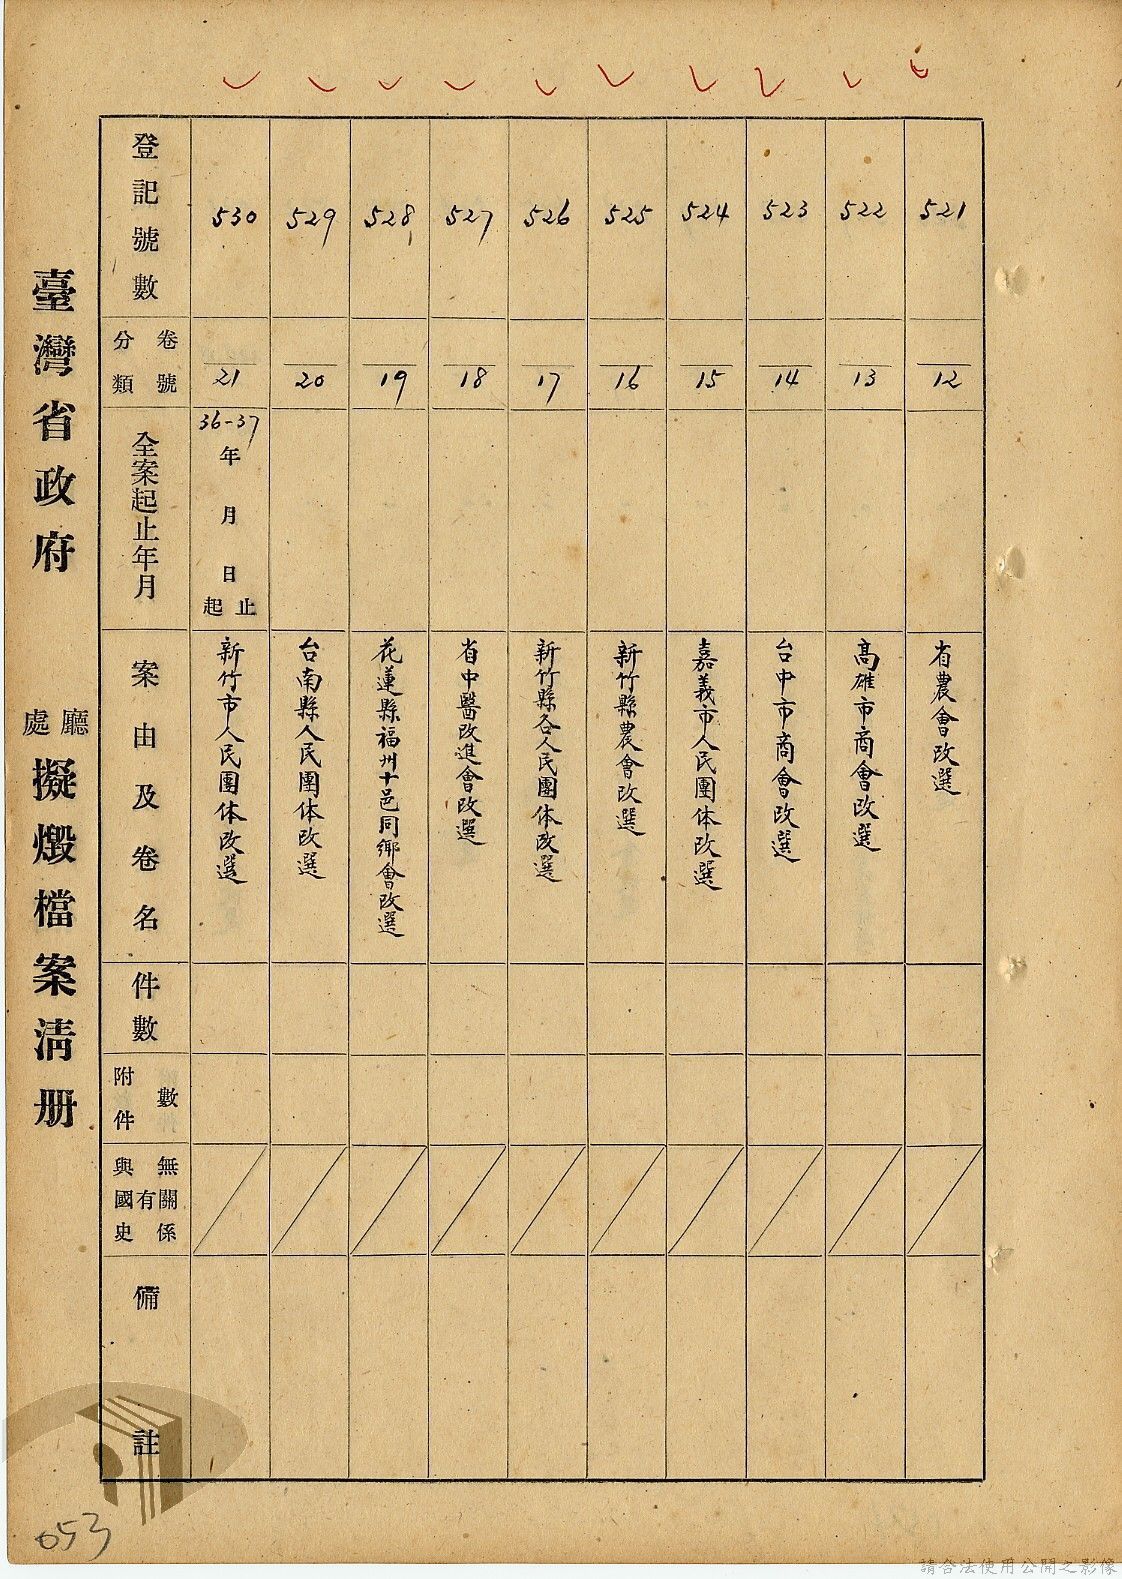 臺灣省政府
廳處
擬燬檔案清册
登記號數
分類
卷號
全案起止年月
案由及卷名
件數
附件
數
與國史
有
無
關係
備註
530
21
36-37
年
月
日
起
止
新竹市人民團体改選
529
20
台南縣人民團体改選
528
19
花蓮縣福州十邑同鄉會改選
527
18
省中醫改進會改選
526
17
新竹縣各人民團体改選
525
16
新竹縣農會改選
524
15
嘉義市人民團体改選
523
14
台中市商會改選
522
13
高雄市商會改選
521
12
省農會改選
053
請合法使用公開之影像